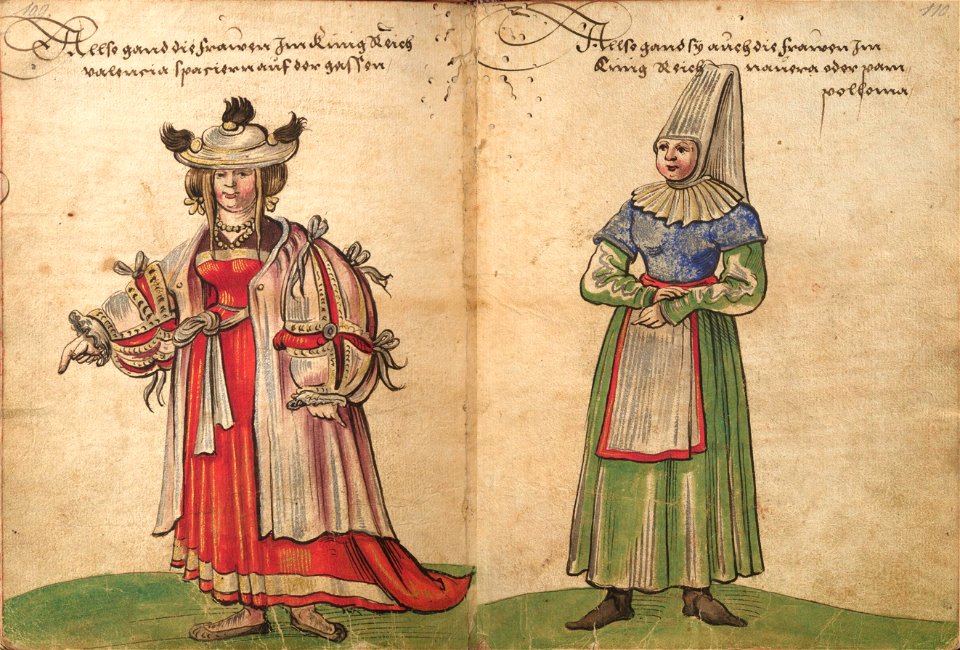 100
Allso gand die frawen Im Kunig Reich
valencia spaciern auf der gassen
110
Allso gand sy auch die frawen Im
Kunig Reich navera oder pam
pollonia